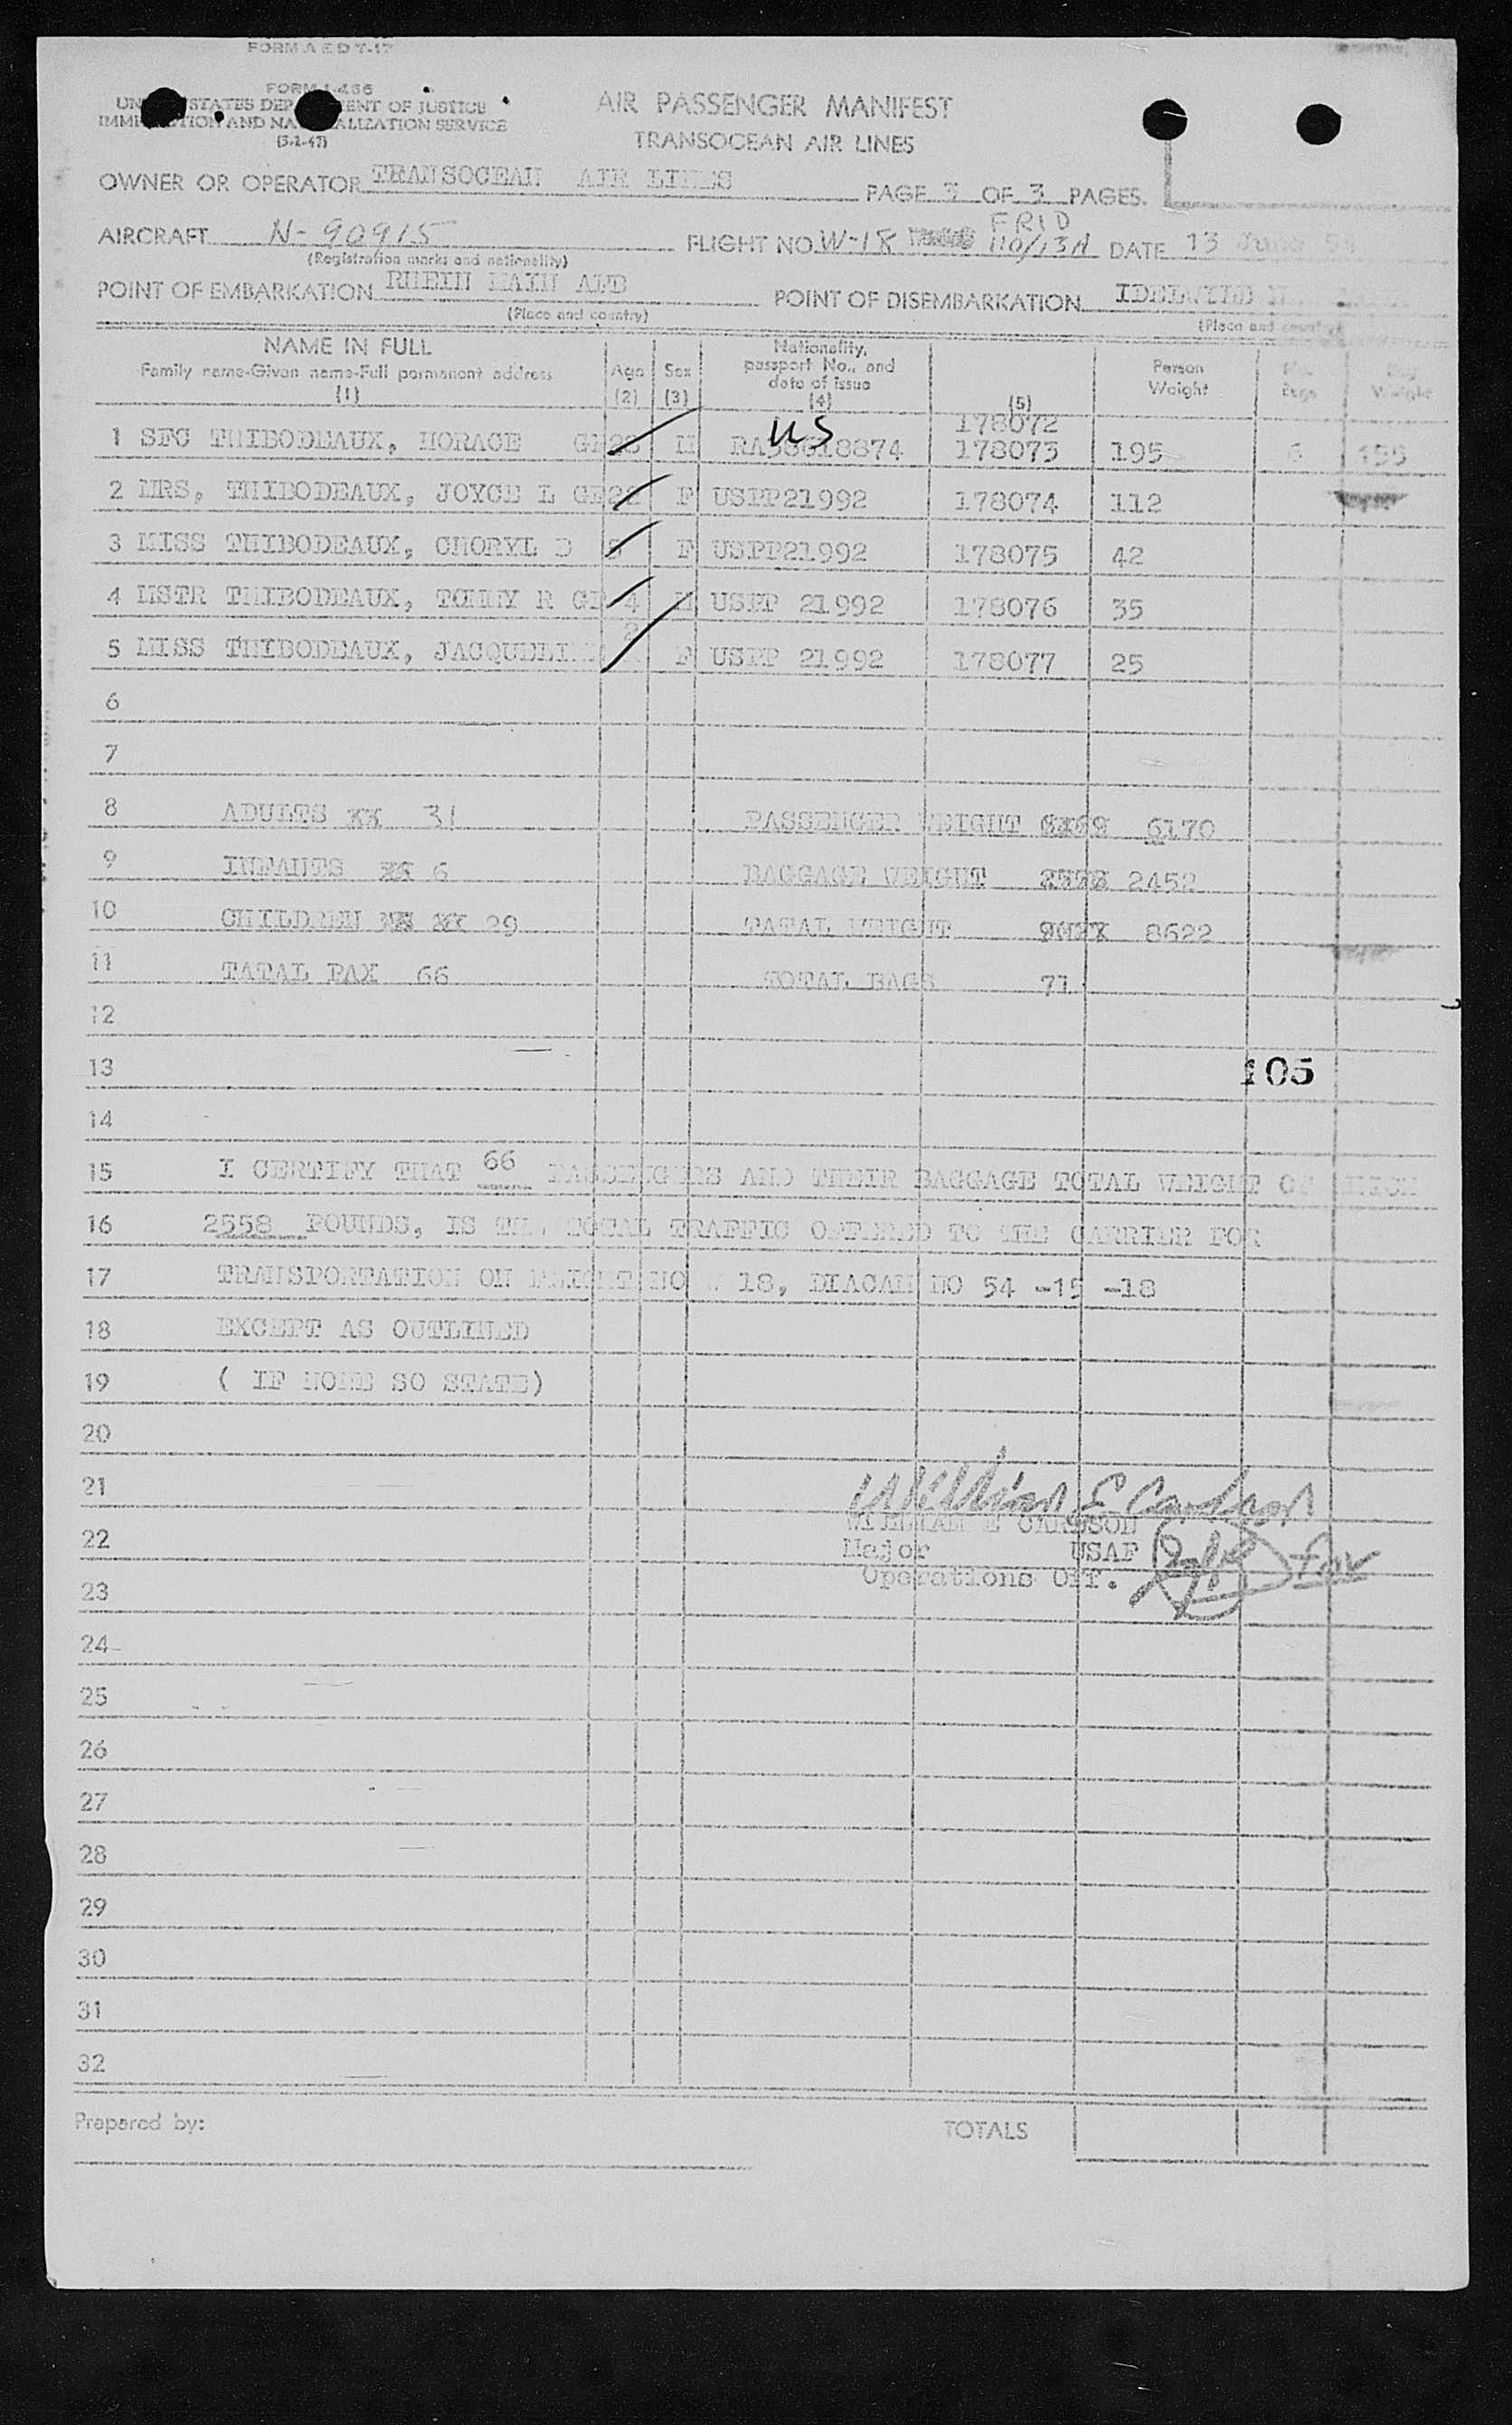 FORM A E D T-17
FORM I-466
UN STATES DEP MENT OF JUSTICE
IMMI TION AND NA ALIZATION SERVICE
(3-1-47)
AIR PASSENGER MANIFEST
TRANSOCEAN AIR LINES
OWNER OR OPERATOR TRANSOCEAN AIR LINES PAGE 3 OF 3 PAGES.
AIRCRAFT N-90915 FLIGHT NO. W-18 FRID 110/13A DATE 13 June 54
(Registration marks and nationality)
POINT OF EMBARKATION RHEIN MAIN AFB POINT OF DISEMBARKATION IDELWILD
(Place and country) (Place and country)
NAME IN FULL
Family name-Given name-Full permanent address
(1)
Age
(2)
Sex
(3)
Nationality,
passport No., and
date of issue
(4)
(5)
Person
Weight
No.
Bags
Bag
Weight
178072
US
1 SFC THIBODEAUX, HORACE 28 M 178073 195 6 155
2 MRS, THIBODEAUX, JOYCE L 22 F USPP21992 178074 112
3 MISS THIBODEAUX, CHORYL D 5 F USPP21992 178075 42
4 MSTR THIBODEAUX, TOMMY R 4 M USPP 21992 178076 35
5 MISS THIBODEAUX, JACQUELINE 2 F USPP 21992 178077 25
6
7
8 ADULTS xx 31 PASSENGER WEIGHT 6170
9 INFANTS xx 6 BAGGAGE WEIGHT 2452
10 CHILDREN xx xx 29 TATAL WEIGHT 8622
11 TATAL PAX 66 TOTAL BAGS 71
12
13 105
14
15 I CERTIFY THAT 66 PASSENGERS AND THEIR BAGGAGE TOTAL WEIGHT OF WHICH
16 2558 POUNDS, IS THE TOTAL TRAFFIC OFFERED TO THE CARRIER FOR
17 TRANSPORTATION ON FLIGHT NO W 18, DIACAM NO 54 -15 -18
18 EXCEPT AS OUTLINED
19 ( IF NONE SO STATE)
20
21 William E Carlson
22 WILLIAM E CARLSON
Major USAF for
23 Operations Off.
24
25
26
27
28
29
30
31
32
Prepared by: TOTALS